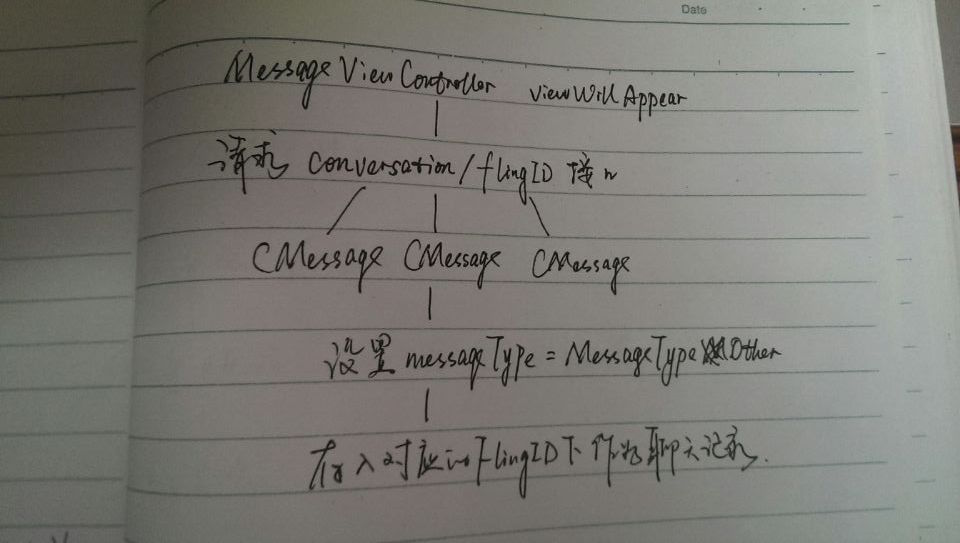 Date
MessageViewController viewWillAppear
请求 conversation/flingID 接口
CMessage CMessage CMessage
设置 messageType = MessageTypeOther
存入对应的flingID下作为聊天记录.